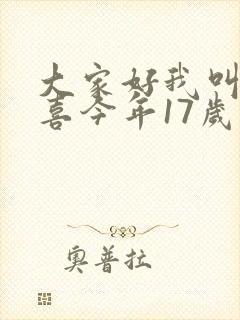 大家好我叫
喜今年17岁
奥普拉